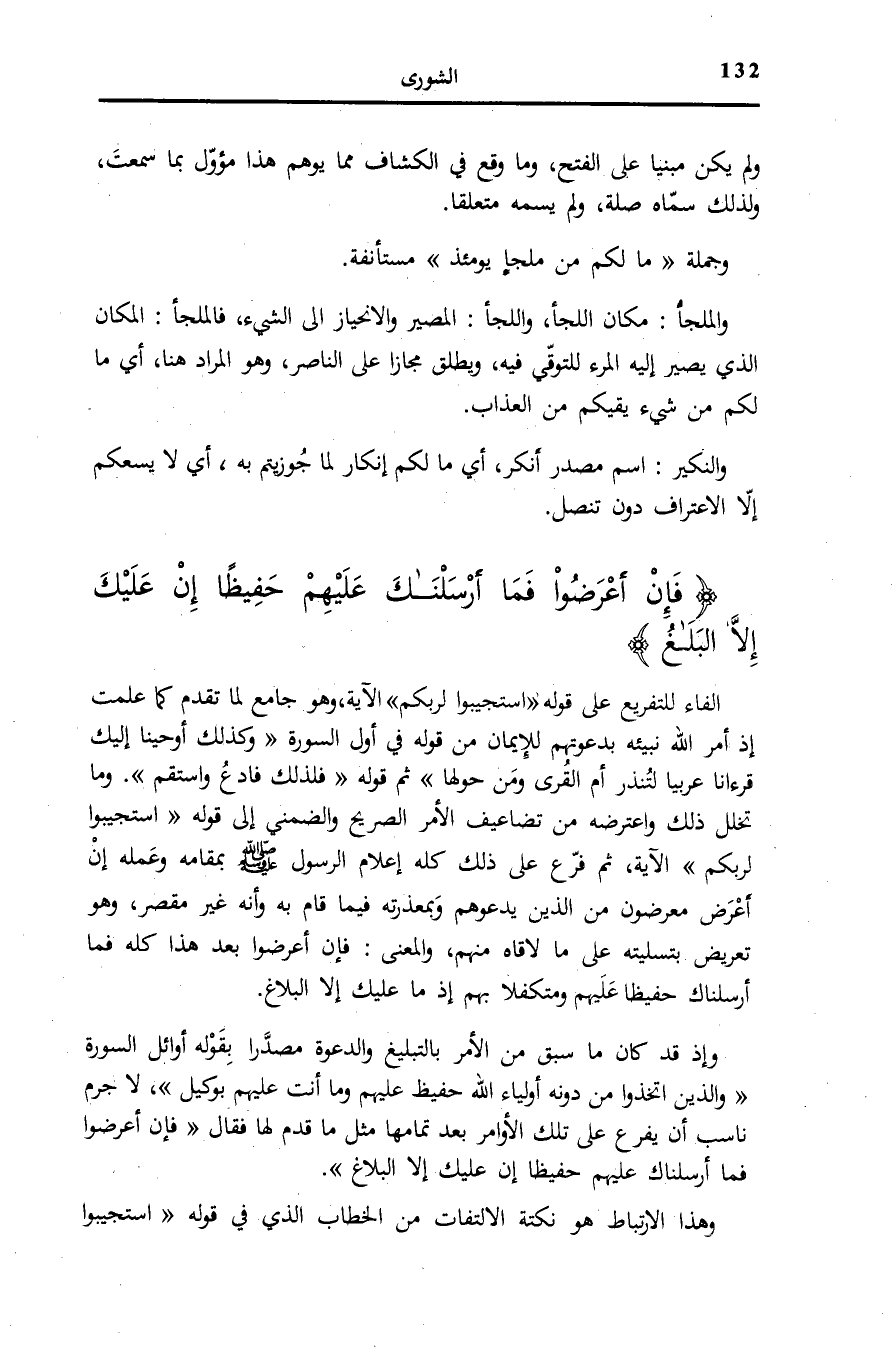 132
الشورى
ولم يكن مبنيا على الفتح، وما وقع في الكشاف مما يوهم هذا مؤوّل بما سمعتَ،
ولذلك سمّاه صلة، ولم يسمه متعلقا.
وجملة « ما لكم من ملجإ يومئذ » مستأنفة.
والملجأُ : مكان اللجأ، واللجأ : المصير والانحياز الى الشيء، فالملجأ : المكان
الذي يصير إليه المرء للتوقّي فيه، ويطلق مجازا على الناصر، وهو المراد هنا، أي ما
لكم من شيء يقيكم من العذاب.
والنكير : اسم مصدر أنكر، أي ما لكم إنكار لما جُوزيتم به ، أي لا يسعكم
إلّا الاعتراف دون تنصل.
﴿ فَإِنْ أَعْرَضُواْ فَمَا أَرْسَلْنَـٰكَ عَلَيْهِمْ حَفِيظًا إِنْ عَلَيْكَ
إِلاَّ البَلَـٰغُ ﴾
الفاء للتفريع على قوله «استجيبوا لربكم» الآية،وهو جامع لما تقدم كما علمت
إذ أمر الله نبيئه بدعوتهم للإيمان من قوله في أول السورة « وكذلك أوحينا إليك
قرءانا عربيا لتُنذر أم القُرى ومَن حولها » ثم قوله « فلذلك فادعُ واستقم ». وما
تخلل ذلك واعترضه من تضاعيف الأمر الصريح والضمني إلى قوله « استجيبوا
لربكم » الآية، ثم فرّع على ذلك كله إعلام الرسول ﷺ بمقامه وعَمله إنْ
أعْرَض معرضون من الذين يدعوهم وَبمعذرته فيما قام به وأنه غير مقصر، وهو
تعريض بتسليته على ما لاقاه منهم، والمعنى : فإن أعرضوا بعد هذا كله فما
أرسلناك حفيظا عَلَيهم ومتكفلا بهم إذ ما عليك إلا البلاغ.
وإذ قد كان ما سبق من الأمر بالتبليغ والدعوة مصدَّرا بِقَوْله أوائل السورة
« والذين اتخذوا من دونه أولياء الله حفيظ عليهم وما أنت عليهم بوكيل »، لا جرم
ناسب أن يفرع على تلك الأوامر بعد تمامها مثل ما قدم لها فقال « فإن أعرضوا
فما أرسلناك عليهم حفيظا إن عليك إلا البلاغ ».
وهذا الارتباط هو نكتة الالتفات من الخطاب الذي في قوله « استجيبوا